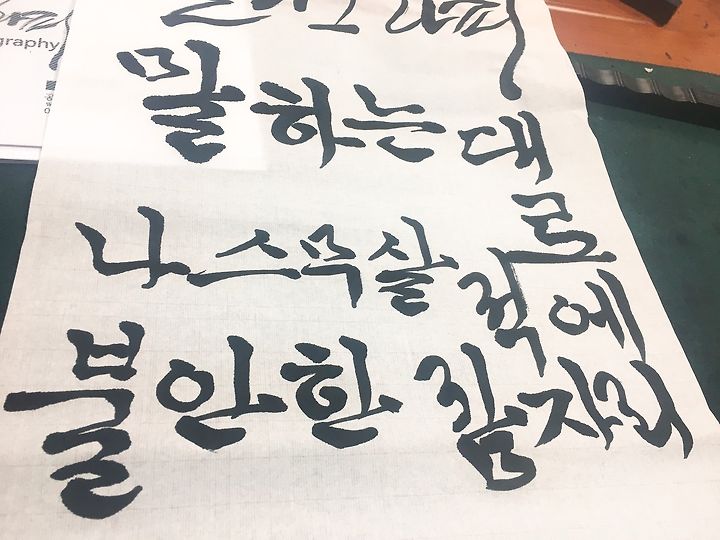 graphy
말하는 대로
나 스무살 적에
불안한 잠자리